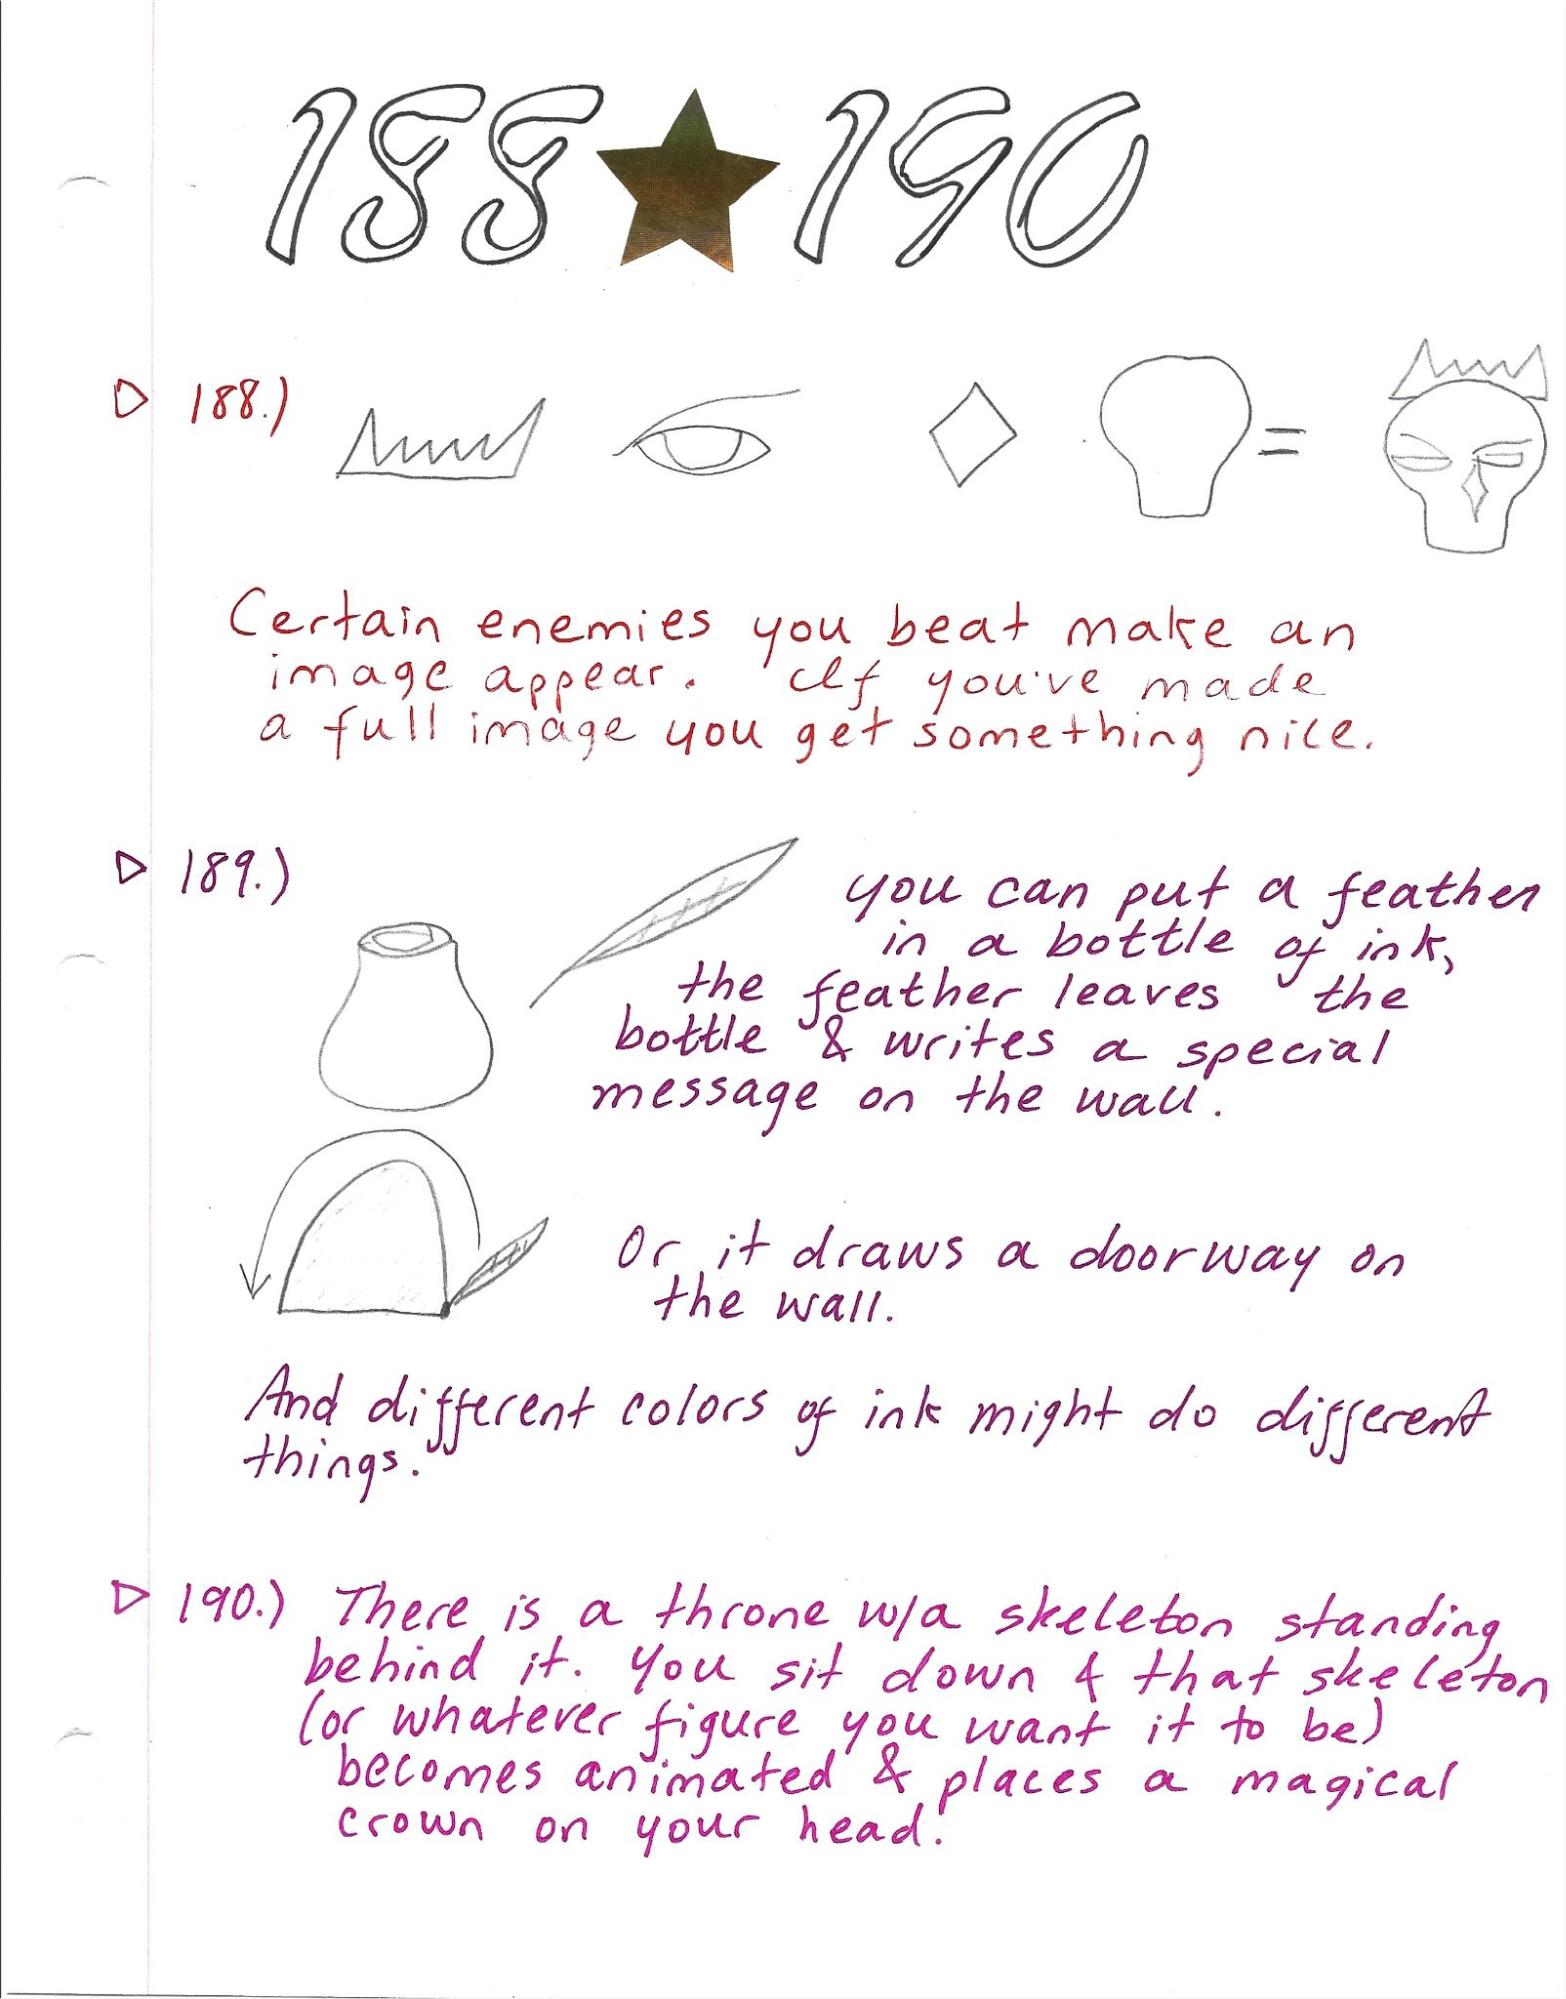 188 ★ 190
188.)
=
Certain enemies you beat make an
image appear. If you've made
a full image you get something nice.
189.)
you can put a feather
in a bottle of ink,
the feather leaves the
bottle & writes a special
message on the wall.
Or it draws a doorway on
the wall.
And different colors of ink might do different
things.
190.) There is a throne w/a skeleton standing
behind it. You sit down & that skeleton
(or whatever figure you want it to be)
becomes animated & places a magical
crown on your head.